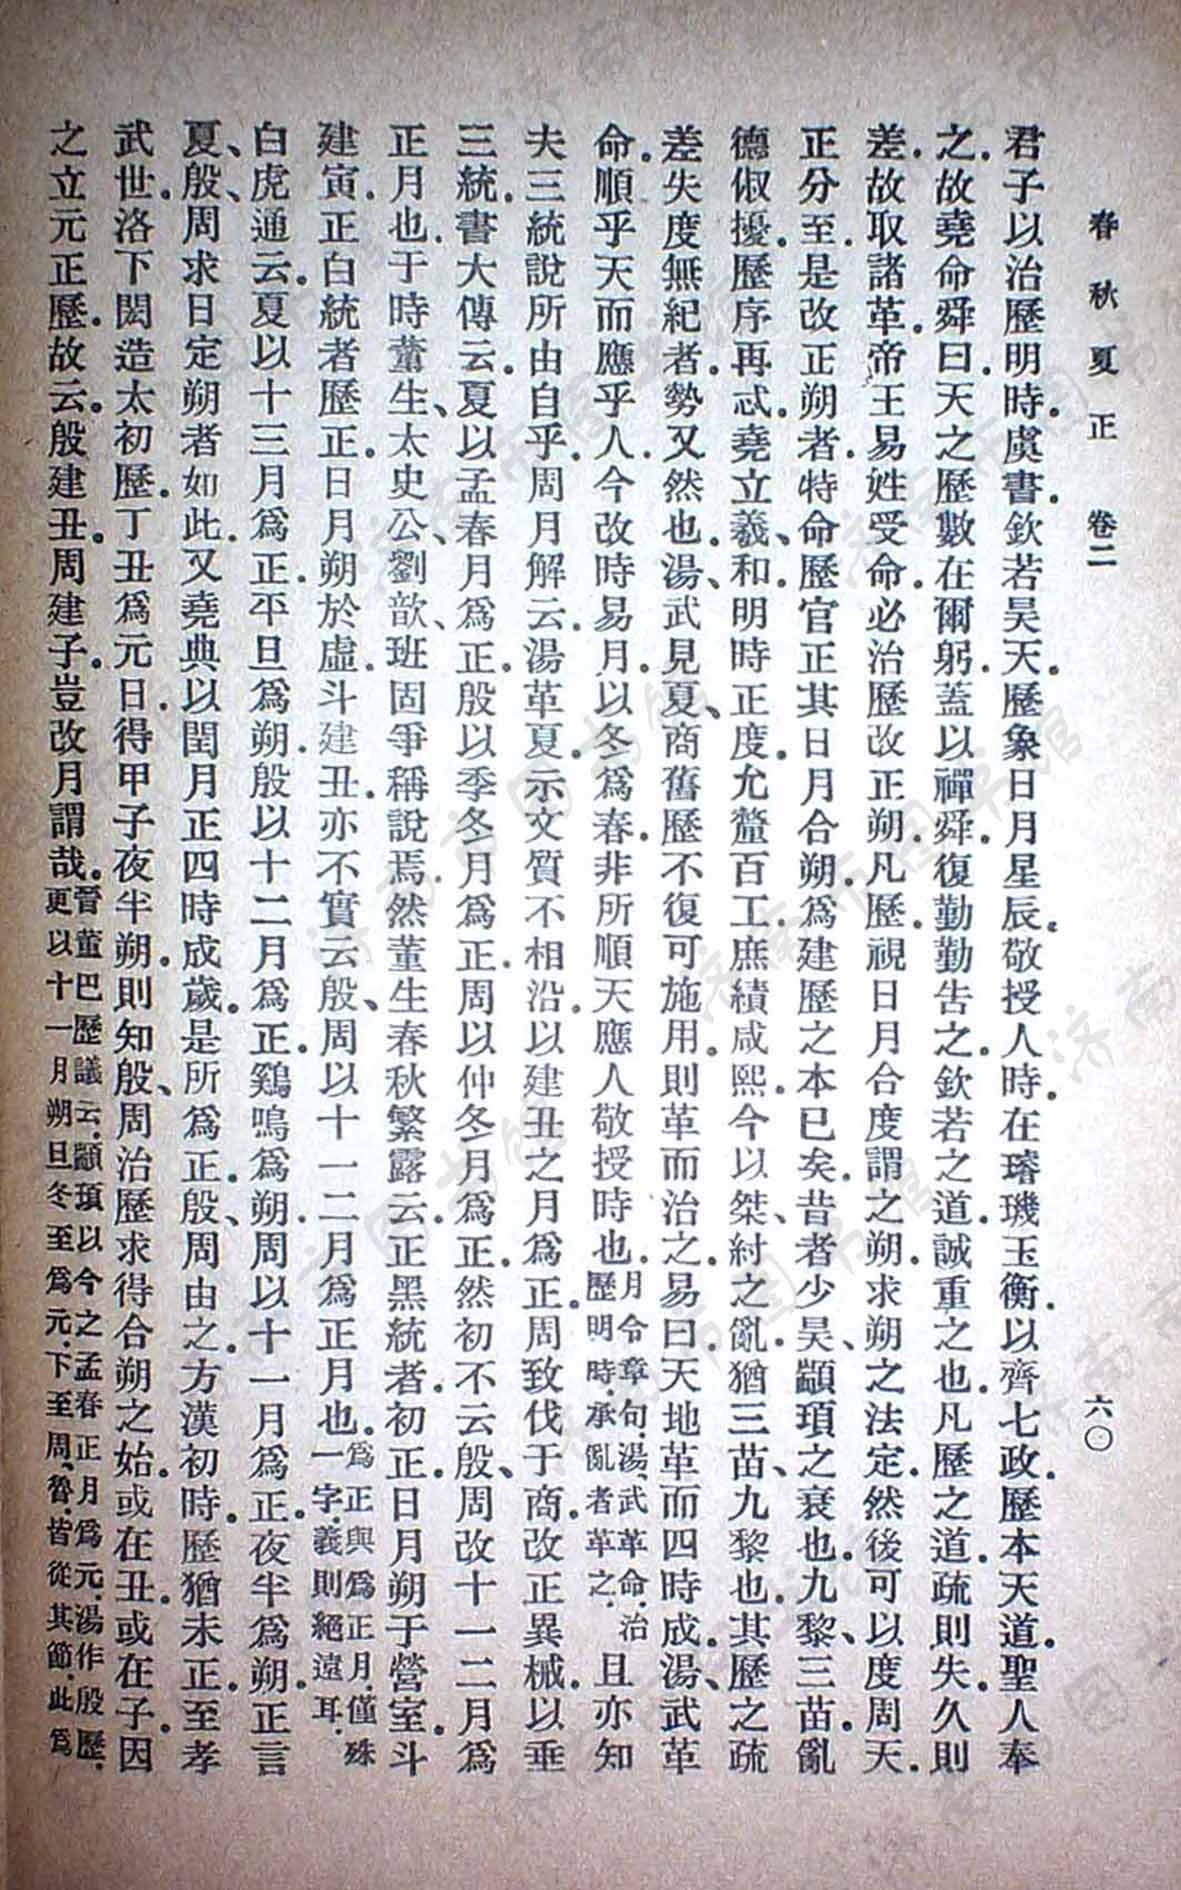 春秋夏正 卷二 六〇
君子以治歷明時。虞書。欽若昊天。歷象日月星辰。敬授人時。在璿璣玉衡。以齊七政。歷本天道。聖人奉
之。故堯命舜曰。天之歷數在爾躬。蓋以禪舜。復勤勤告之。欽若之道。誠重之也。凡歷之道。疏則失。久則
差。故取諸革。帝王易姓受命。必治歷改正朔。凡歷。視日月合度謂之朔。求朔之法定。然後可以度周天。
正分至。是改正朔者。特命歷官正其日月合朔。爲建歷之本已矣。昔者少昊、顓頊之衰也。九黎、三苗。亂
德俶擾。歷序再忒。堯立羲、和。明時正度。允釐百工。庶績咸熙。今以桀、紂之亂。猶三苗、九黎也。其歷之疏
差失度無紀者。勢又然也。湯、武見夏、商舊歷不復可施用。則革而治之。易曰。天地革而四時成。湯、武革
命。順乎天而應乎人。今改時易月。以冬爲春。非所順天應人敬授時也。月令章句。湯、武革命。治歷明時。承亂者革之。且亦知
夫三統說所由自乎。周月解云。湯革夏。示文質不相沿。以建丑之月爲正。周致伐于商。改正異械。以垂
三統。書大傳云。夏以孟春月爲正。殷以季冬月爲正。周以仲冬月爲正。然初不云殷、周改十一二月爲
正月也。于時董生、太史公、劉歆、班固爭稱說焉。然董生春秋繁露云。正黑統者。初正。日月朔于營室。斗
建寅。正白統者歷正。日月朔於虛。斗建丑。亦不實云殷、周以十一二月爲正月也。爲正與爲正月。僅殊一字。義則絕遠耳。
白虎通云。夏以十三月爲正。平旦爲朔。殷以十二月爲正。鷄鳴爲朔。周以十一月爲正。夜半爲朔。正言
夏、殷、周求日定朔者如此。又堯典以閏月正四時成歲。是所爲正。殷、周由之。方漢初時。歷猶未正。至孝
武世。洛下閎造太初歷。丁丑爲元日。得甲子夜半朔。則知殷、周治歷求得合朔之始。或在丑。或在子。因
之立元正歷。故云。殷建丑。周建子。豈改月謂哉。晉董巴歷議云。顓頊以今之孟春正月爲元。湯作殷歷。更以十一月朔旦冬至爲元。下至周、魯皆從其節。此爲